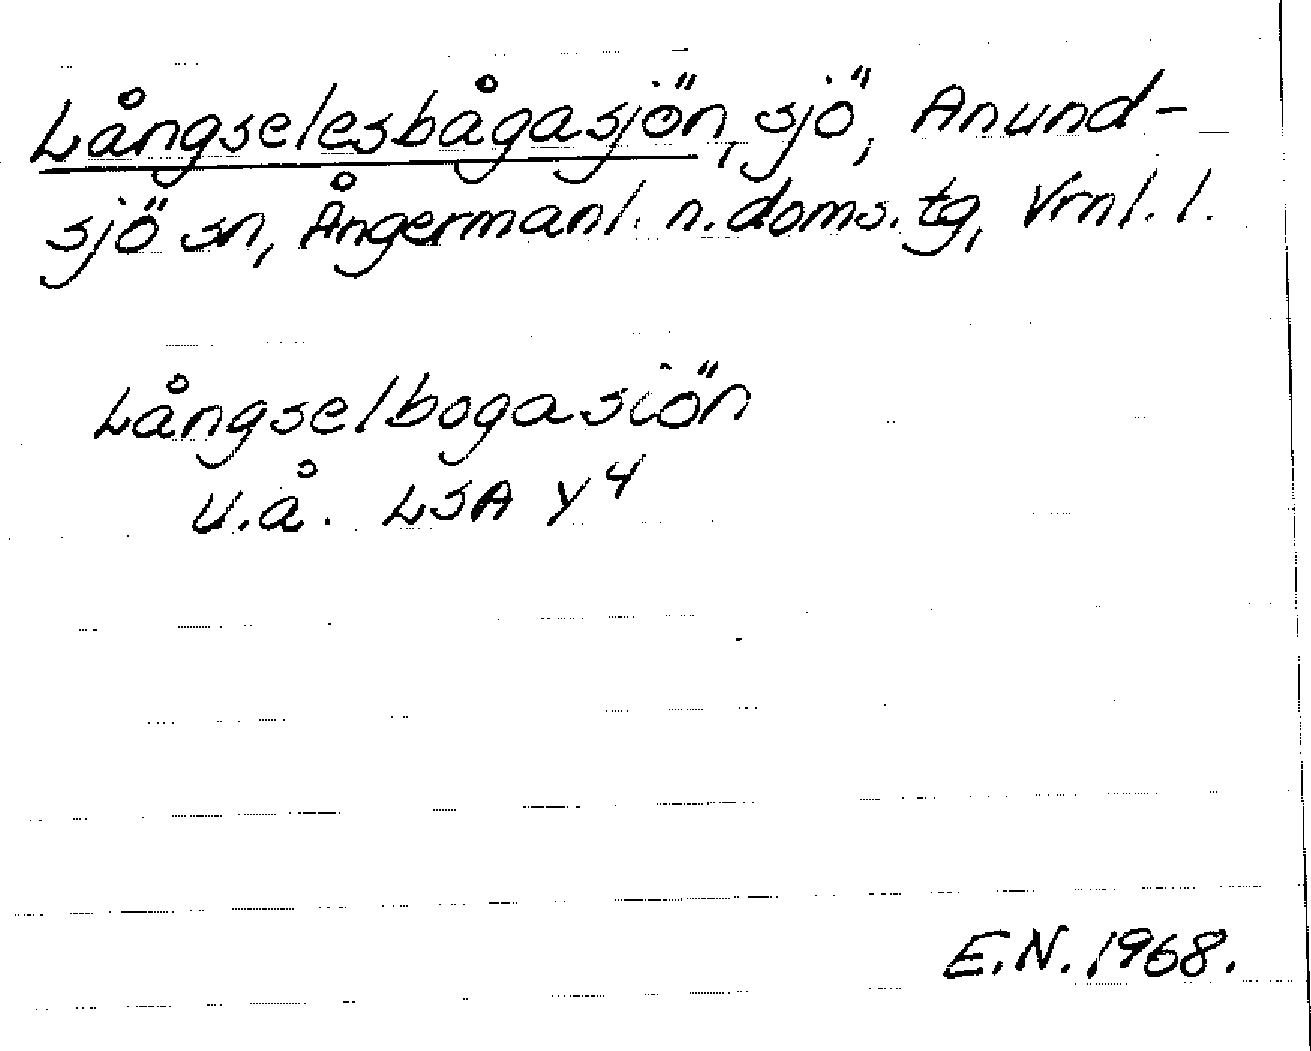 Långselesbågasjön, sjö, Anund-
sjö sn, Ångermanl. n. doms. tg, Vrnl. l.
Långselbogasiön
u.å. LSA Y4
E.N. 1968.